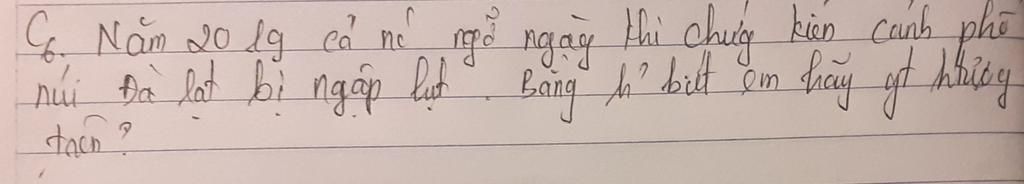 C6. Năm 2019 cả nc ngỡ ngàg khi chứg kiến cảnh phố
núi Đà lạt bị ngập lụt. Bằng h' biết em hãy gt
trên?